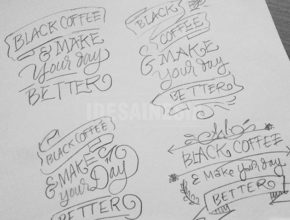 BLACK COFFEE
& MAKE
your day
BETTER
BLACK
COFFEE
& MAKE
your day
BETTER
BLACK COFFEE
& MAKE
your Day
BETTER
BLACK COFFEE
& Make your day
BETTER